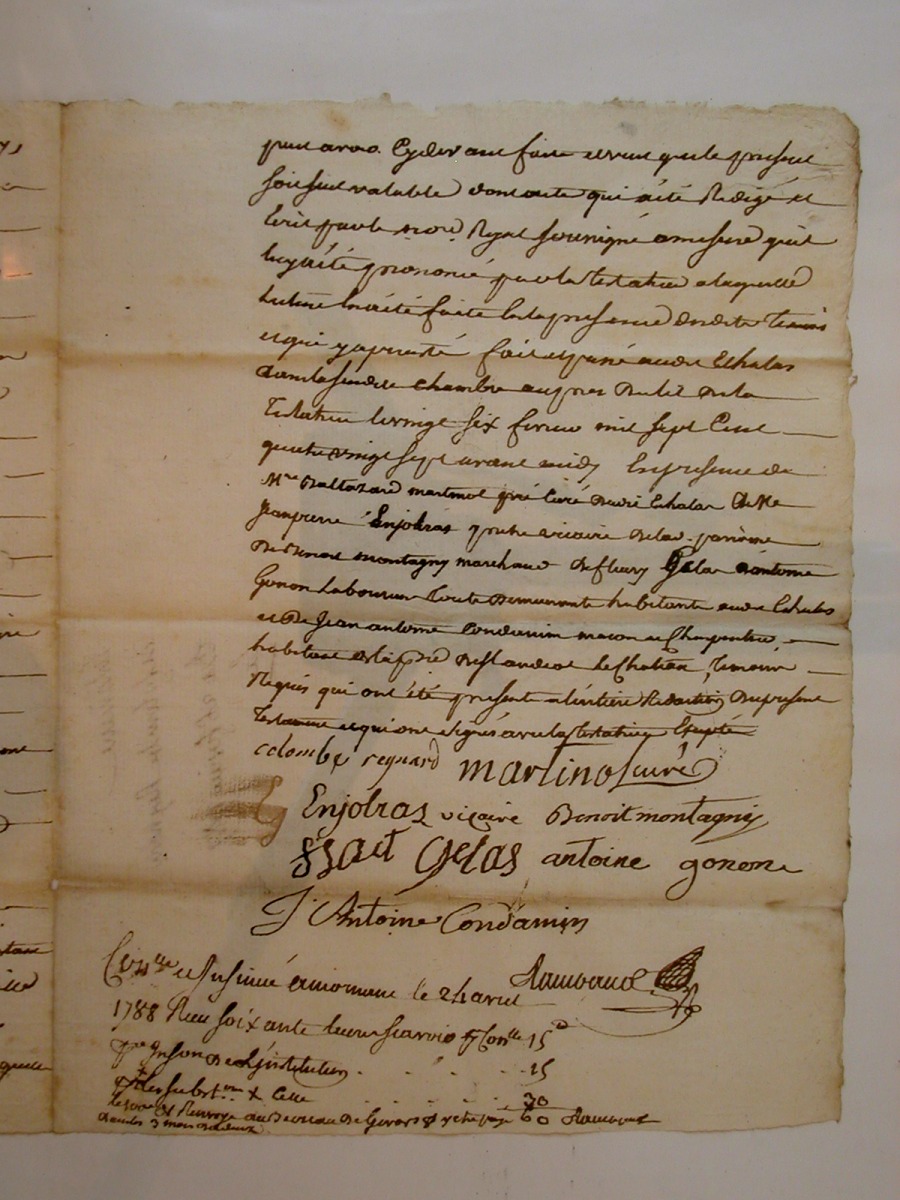 par avoir cydevant faite et veut que le présent
soit seul valable dont acte qui a été Redigé et
Ecrit par le Royal soussigné a mesure qu'il
luy a été prononcé par la testatrice a laquelle
lecture en a été faite en la presence desdits Temoins
et qui y a persisté fait et passé audit Echalas
dans la susdite chambre aupres du lit de la
Testatrice le vingt six fevrier mil sept Cent
quatre vingt sept avant midy En presence de
Mre Baltazard martinot curé dudit Echalas de Me
Jean pierre Enjolras pretre vicaire de la paroisse
De Benoit montagny marchand Gelas d'antoine
Gonon Laboureur Tous Demeurants habitants audit Echalas
et De Jean antoine Condamin macon et Charpentier
habitant de St andeol le Chateau Temoins
Requis qui ont été presents a l'entiere Redaction Du present
Testament et qui ont signés avec la testatrice Excepté
colombe regnard martinot curé
Enjolras vicaire Benoit montagny
Gelas antoine gonon
J. Antoine Condamin
Con.lle et Insinué a mornant le 24 avril
1788 Reçu soixante livres Con.lle 15
De L'institution 15
30
Renvoyé au Bureau De Givors 60
dans les 3 mois